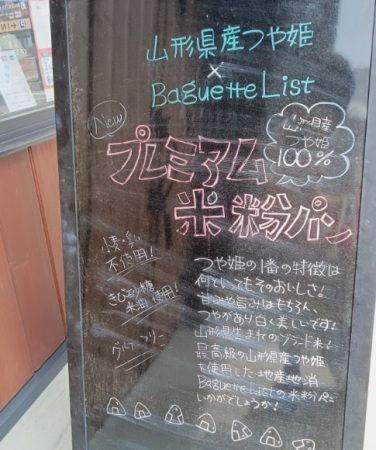 山形県産つや姫
×
Baguette List
New
山形県産
つや姫
100%
プレミアム
米粉パン
卵・乳
不使用!
きび砂糖
米油 使用!
グルテンフリー
つや姫の1番の特徴は
何といってもそのおいしさ!
甘みや旨みはもちろん、
つやがあり白く美しいです!
山形県生まれのブランド米!
最高級の山形県産つや姫
を使用した地産地消
Baguette Listの米粉パン
いかがでしょうか!